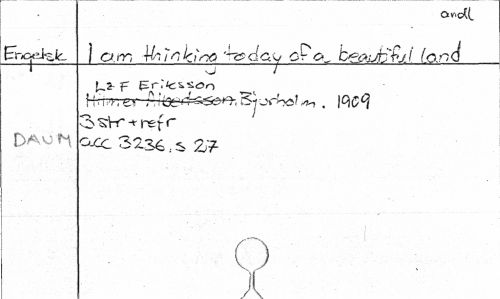 andl
Engelsk I am thinking today of a beautiful land
L & F Eriksson
Hilmer Albertsson. Bjurholm. 1909
3 str + refr
DAUM acc 3236, s 27